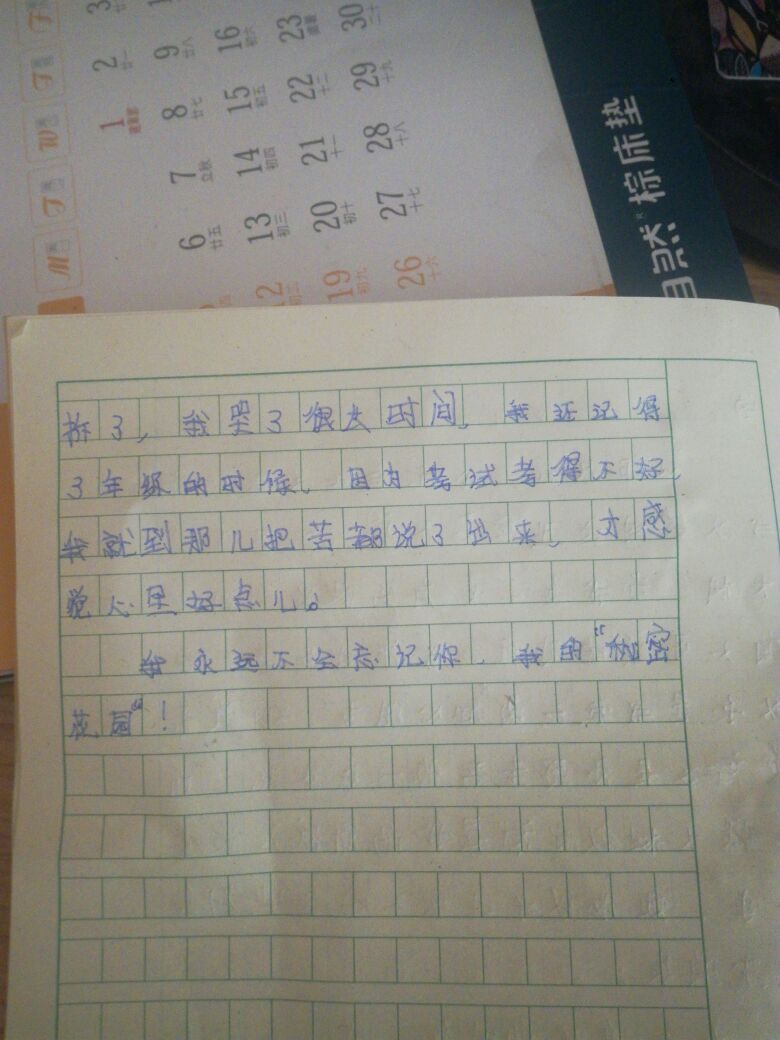 拆了，我哭了很久时间，我还记得
3年级的时候，因为考试考得不好，
我就到那儿把苦都说了出来，才感
觉心里好点儿。
我永远不会忘记你，我的“秘密
花园”！
M T W T F
1 建军节 2 廿一
6 廿五 7 立秋 8 廿七 9 廿八
13 初三 14 初四 15 初五 16 初六
19 初九 20 初十 21 十一 22 十二 23 处暑
26 十六 27 十七 28 十八 29 十九 30 二十
自然®棕床垫